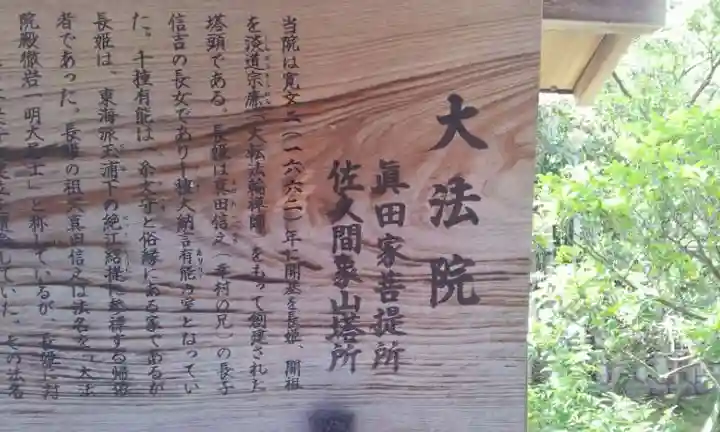 大法院
眞田家菩提所
佐久間象山塔所
当院は寛文二(一六六二)年に開基を長姫、開祖
を淡道宗廉「大転法輪禅師」をもって創建された
塔頭である。長姫は真田信之(幸村の兄)の長子
信吉の長女であり千種大納言有能の室となってい
た。千種有能は、系文守と俗縁にある家であるが
長姫は、東海派玉浦下の絶江紹堤に参禅する帰依
者であった。長姫の祖父真田信之は法名を「大法
院殿徹岩一明大居士」と称しているが、長姫に対
していた。その法名